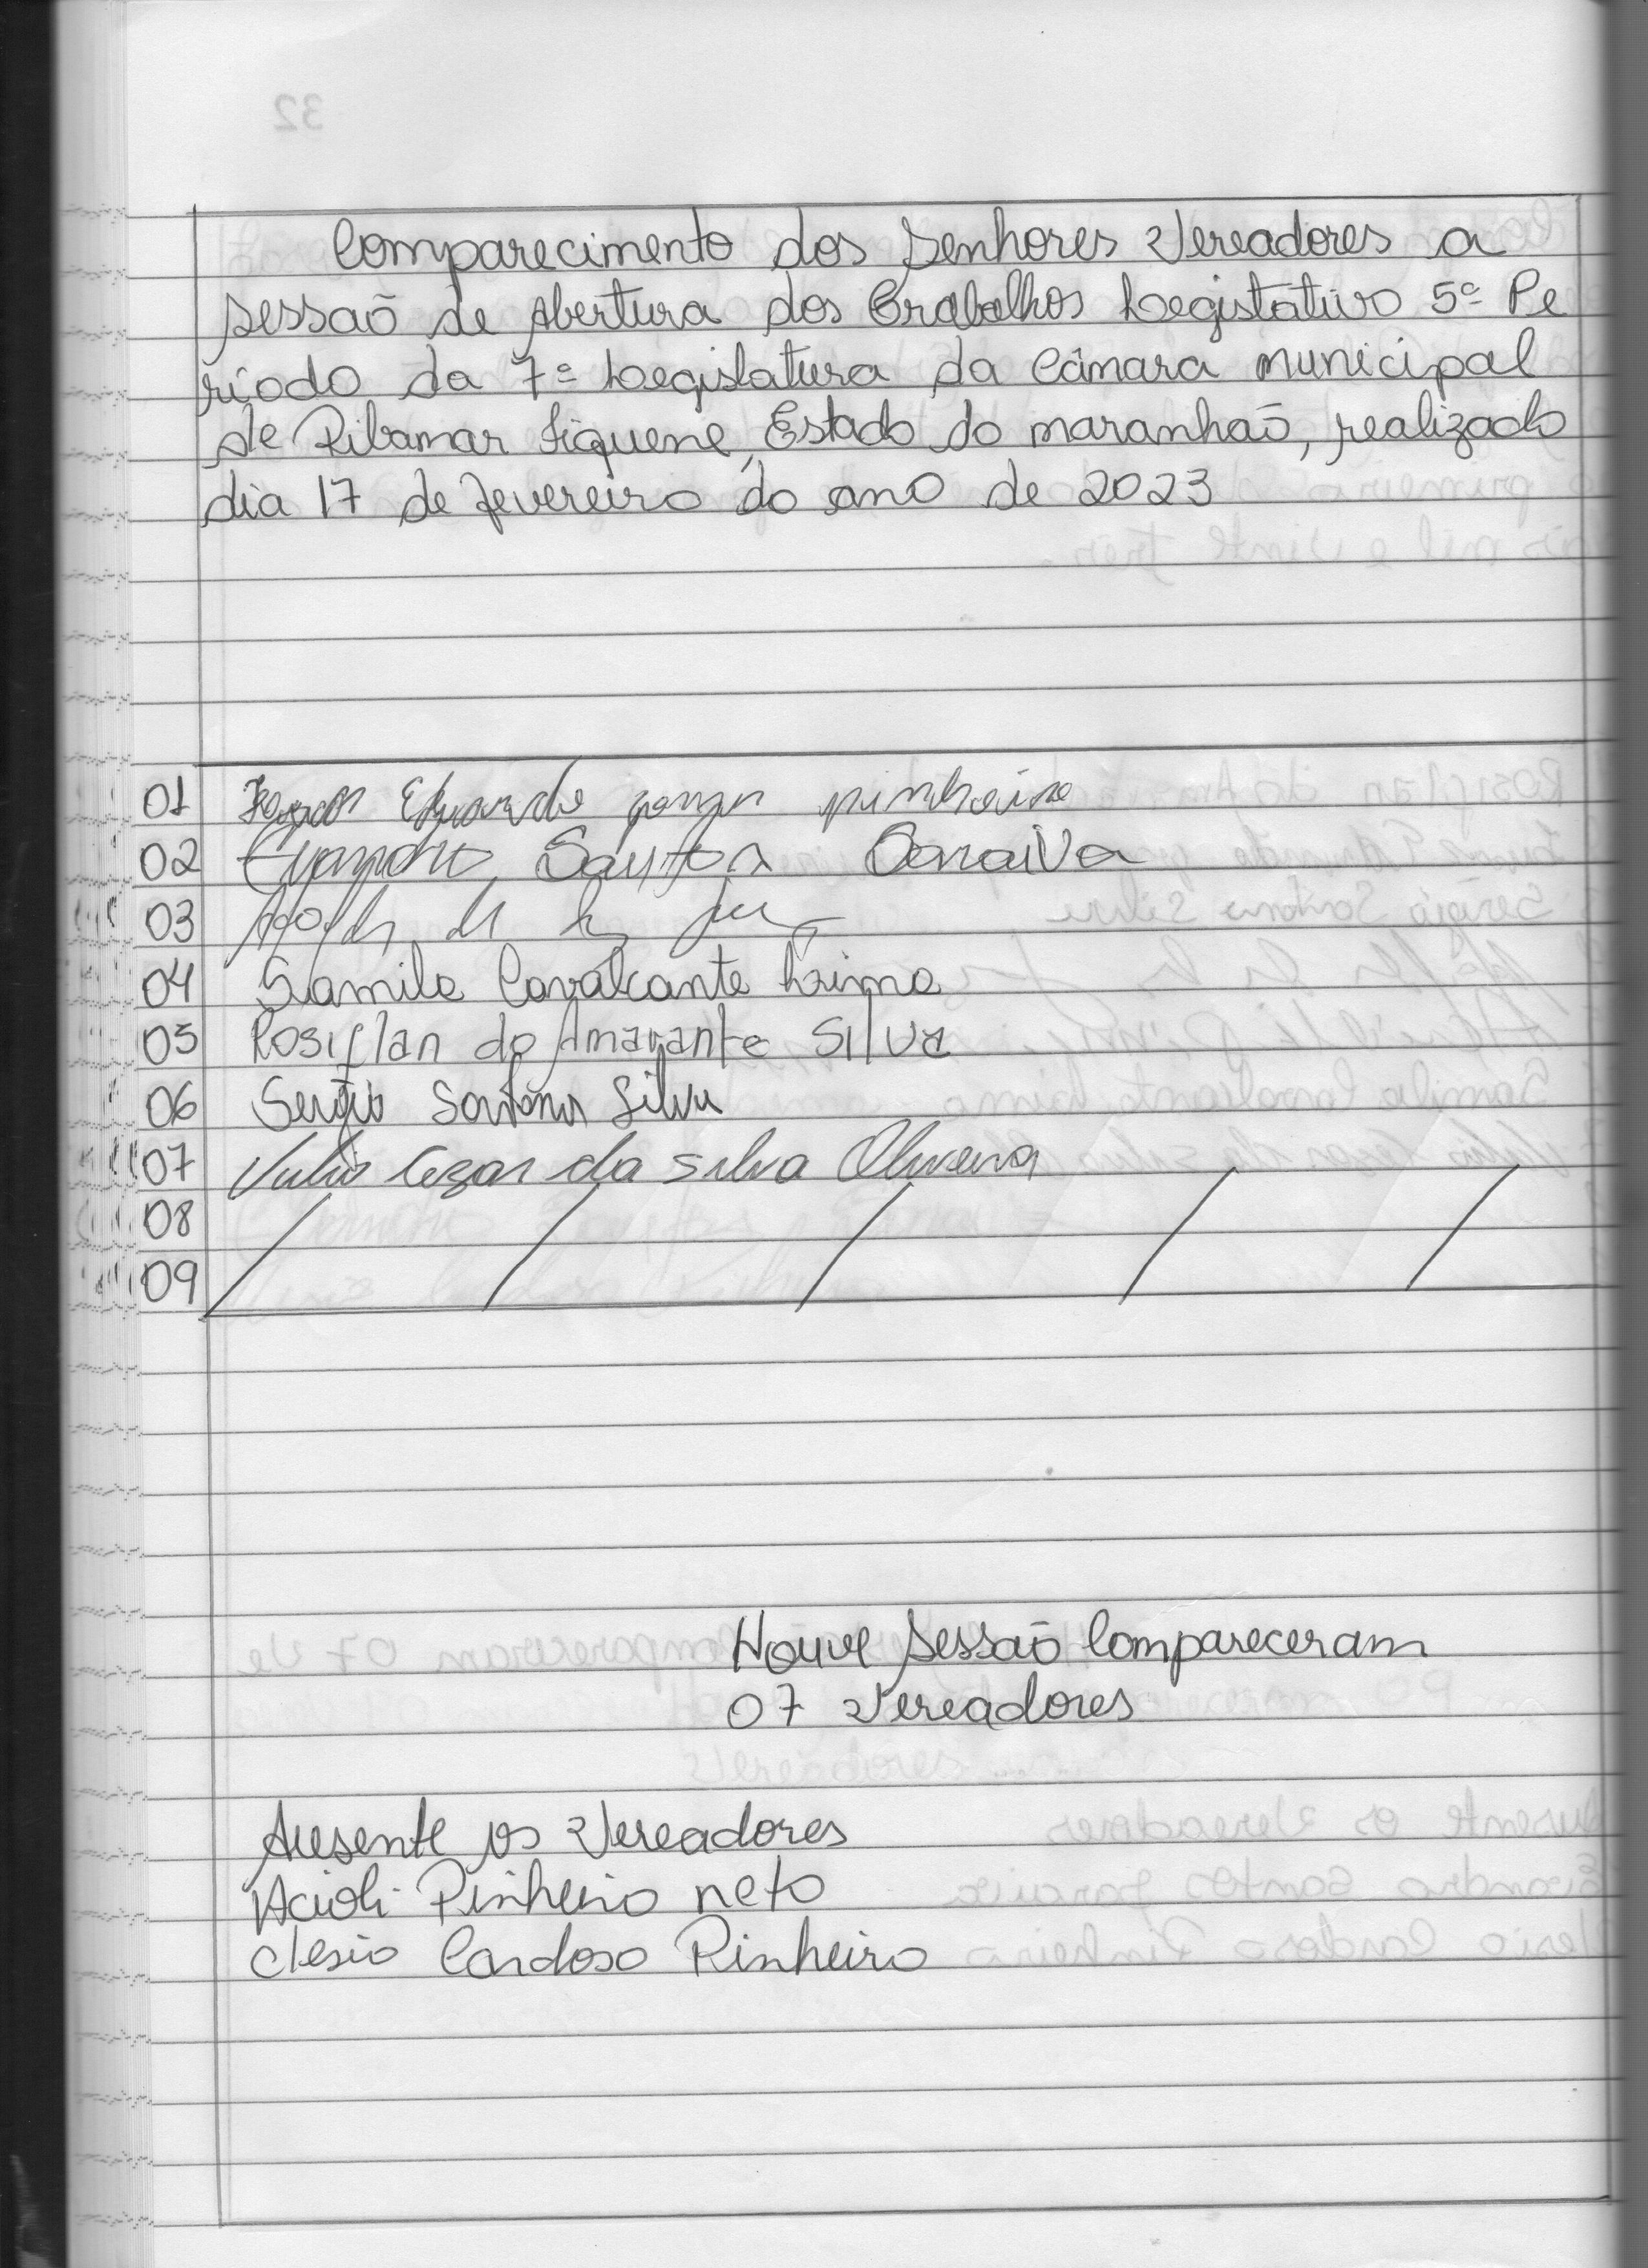 Comparecimento dos Senhores Vereadores a
sessão de Abertura dos Trabalhos Legistativo 5º Pe
ríodo da 7ª Legislatura da Câmara Municipal
de Ribamar Fiquene, Estado do maranhão, realizado
dia 17 de fevereiro do ano de 2023
01 Eduardo pinheiro
02 Evandro Santos Saraiva
03
04 Samila Cavalcante Lima
05 Rosiflan do Amarante Silva
06 Sergio Santana Silva
07 Julio Cezar da Silva Oliveira
08
09
Houve Sessão Compareceram
07 Vereadores
Ausente os Vereadores
Acioli Pinheiro neto
Clesio Cardoso Pinheiro